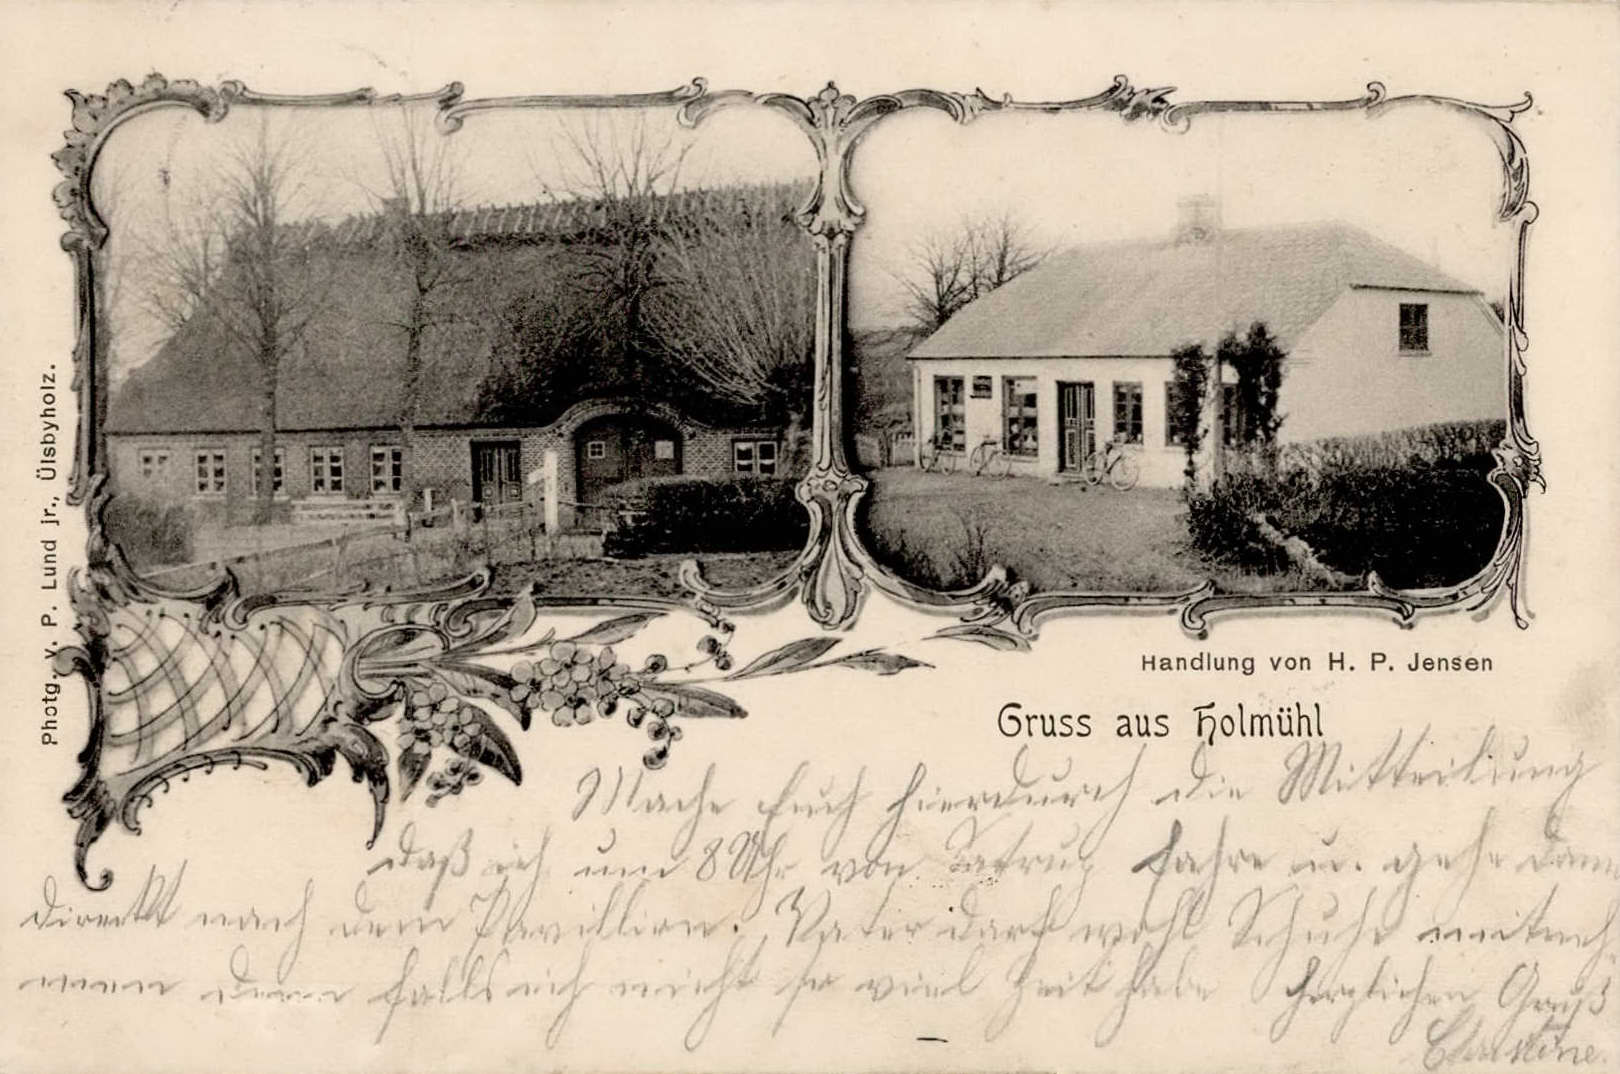 Photg. v. P. Lund jr., Ülsbyholz.
Handlung von H. P. Jensen
Gruss aus Holmühl
Mache Euch hierdurch die Mitteilung
daß ich um 8 Uhr von Satrup fahre u. gehe dann
direkt nach dem Pavillion. Vater darf wohl Schuhe mitneh
men denn falls ich nicht so viel Zeit habe herzlichen Gruß
Christine.